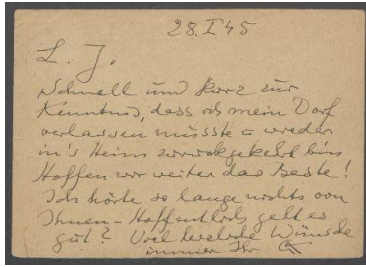 28.I 45
L. J.
Schnell und kurz zur
Kenntnis, dass ich mein Dorf
verlassen musste u wieder
in's Heim zurückgekehrt bin
Hoffen wir weiter das Beste!
Ich hörte so lange nichts von
Ihnen - Hoffentlich geht es
gut? Viel herzliche Wünsche
immer Ihr